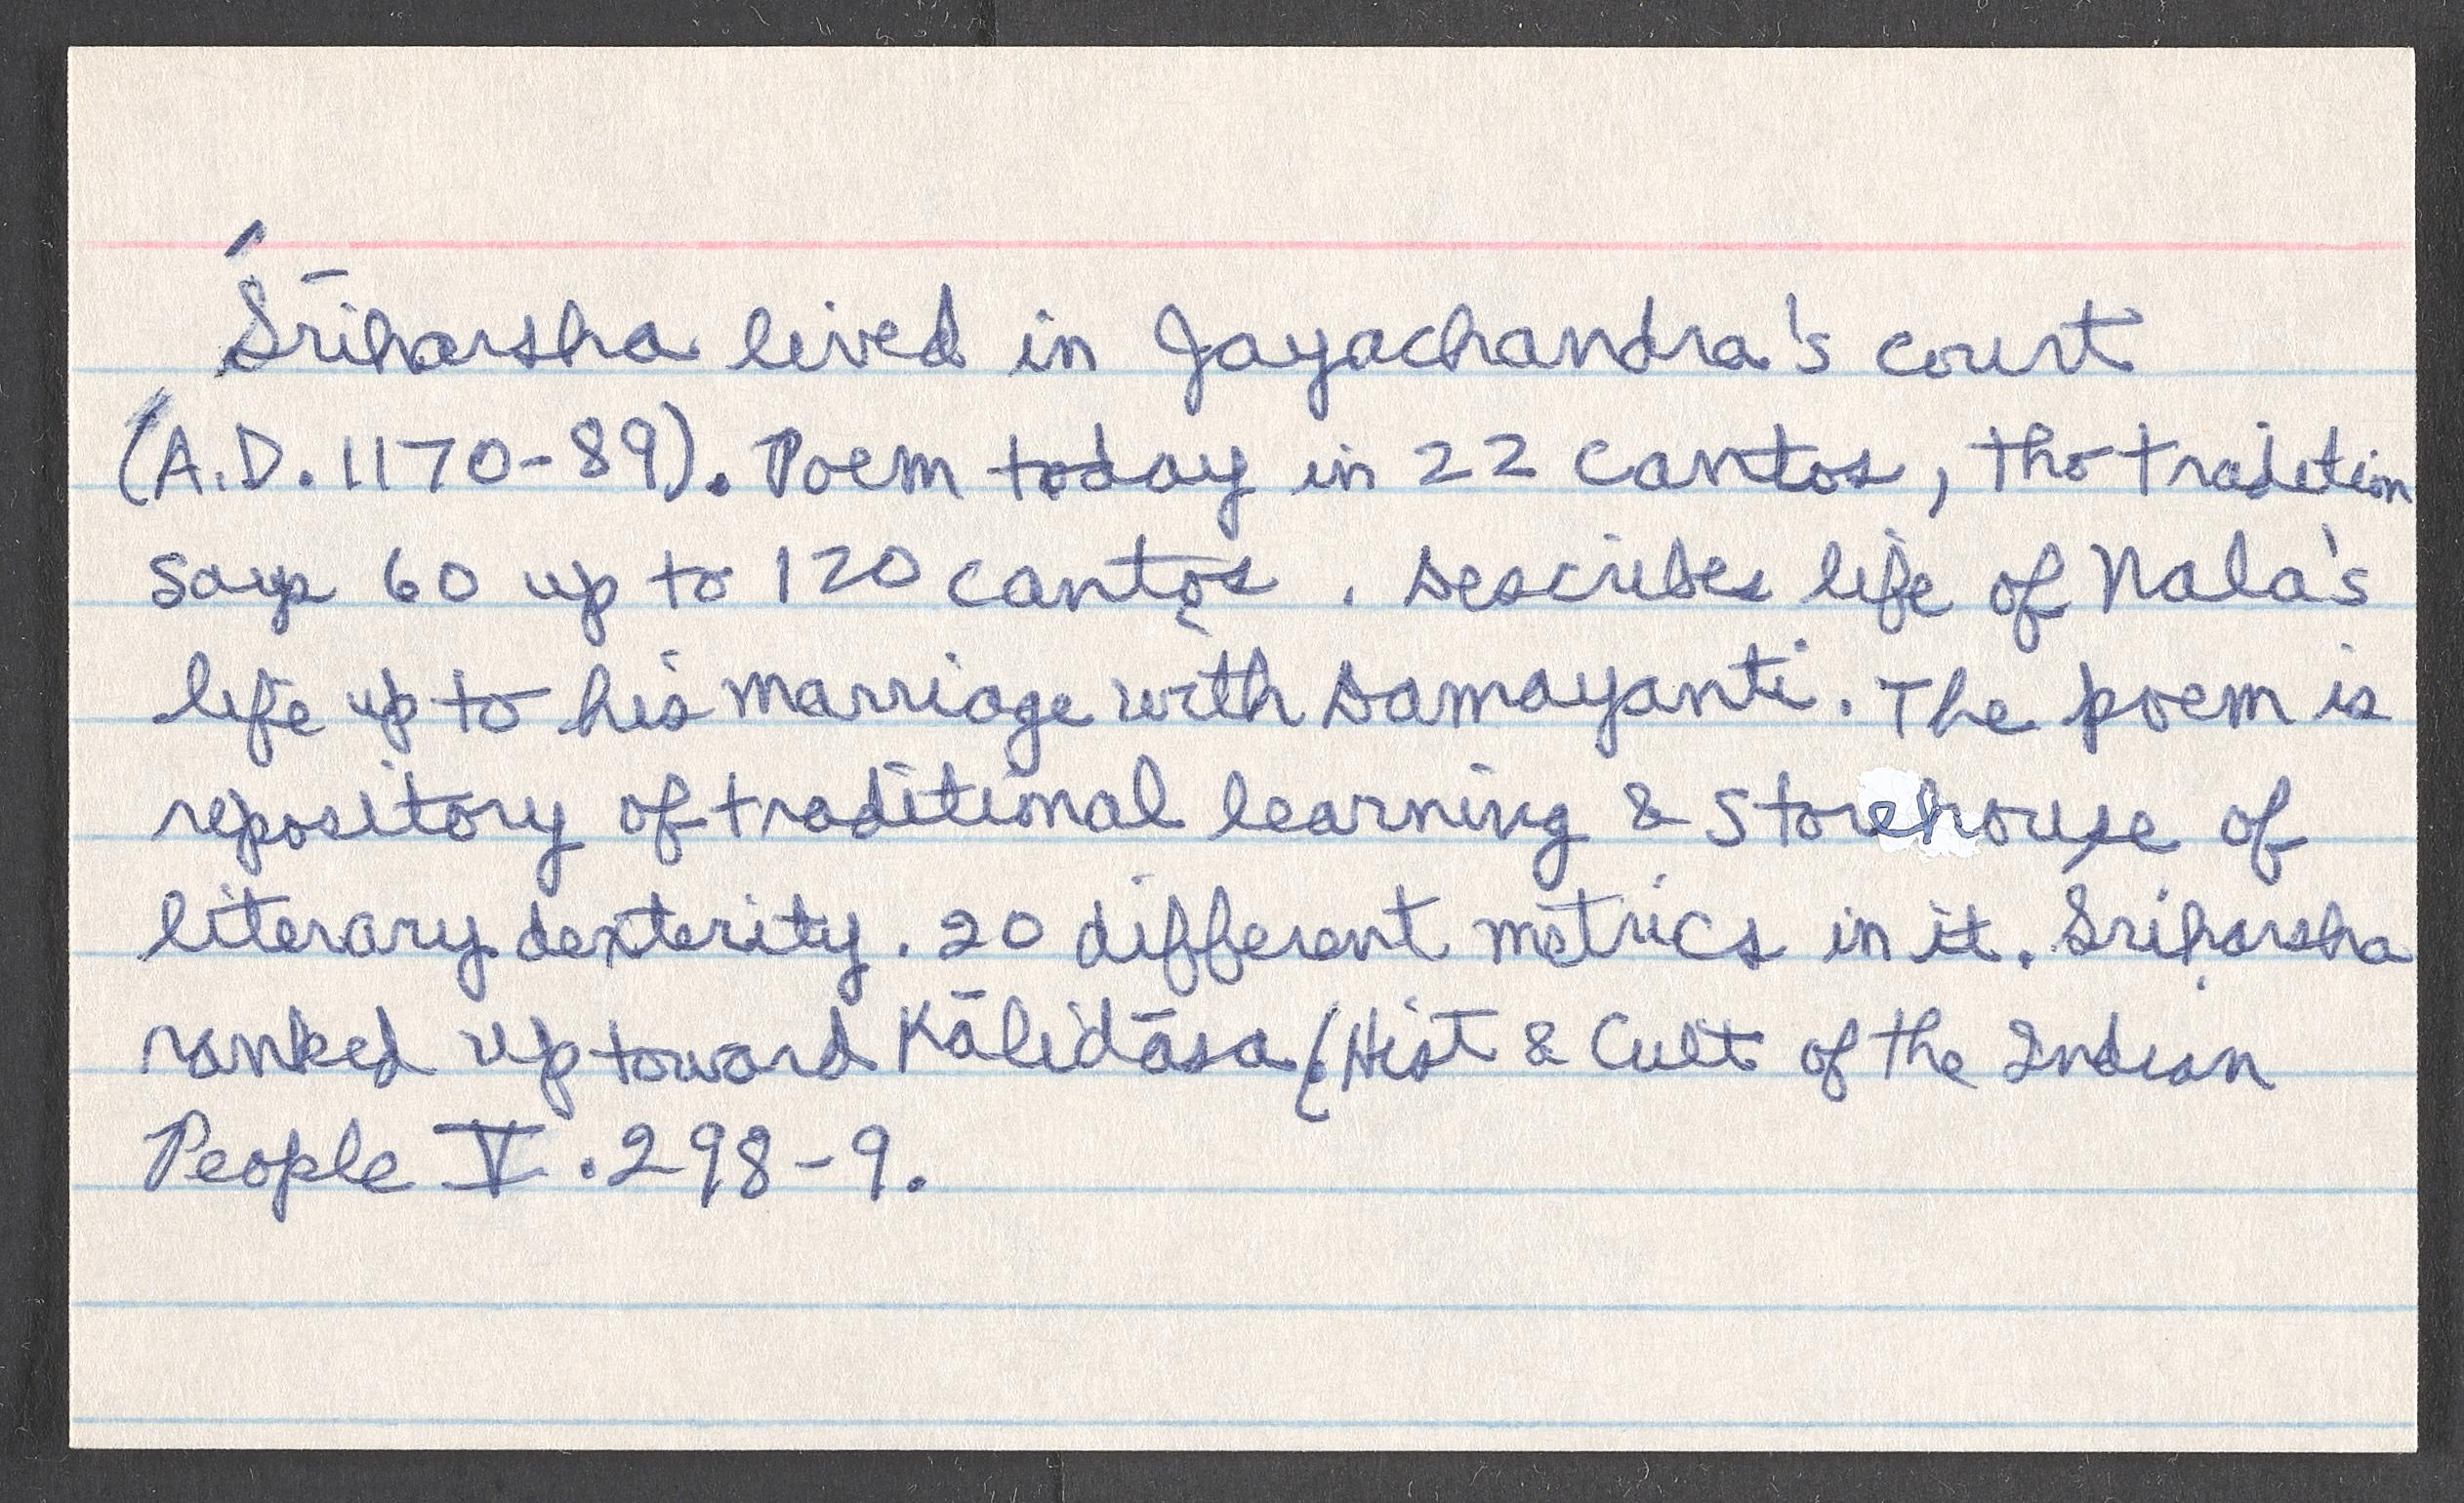 Śrīharsha lived in Jayachandra's court
(A.D. 1170-89). Poem today in 22 cantos, tho tradition
says 60 up to 120 cantos. Describes life of Nala's
life up to his marriage with Damayanti. The poem is
repository of traditional learning & storehouse of
literary dexterity. 20 different metrics in it. Sriharsha
ranked up toward Kālidāsa (Hist & Cult of the Indian
People V. 298-9.